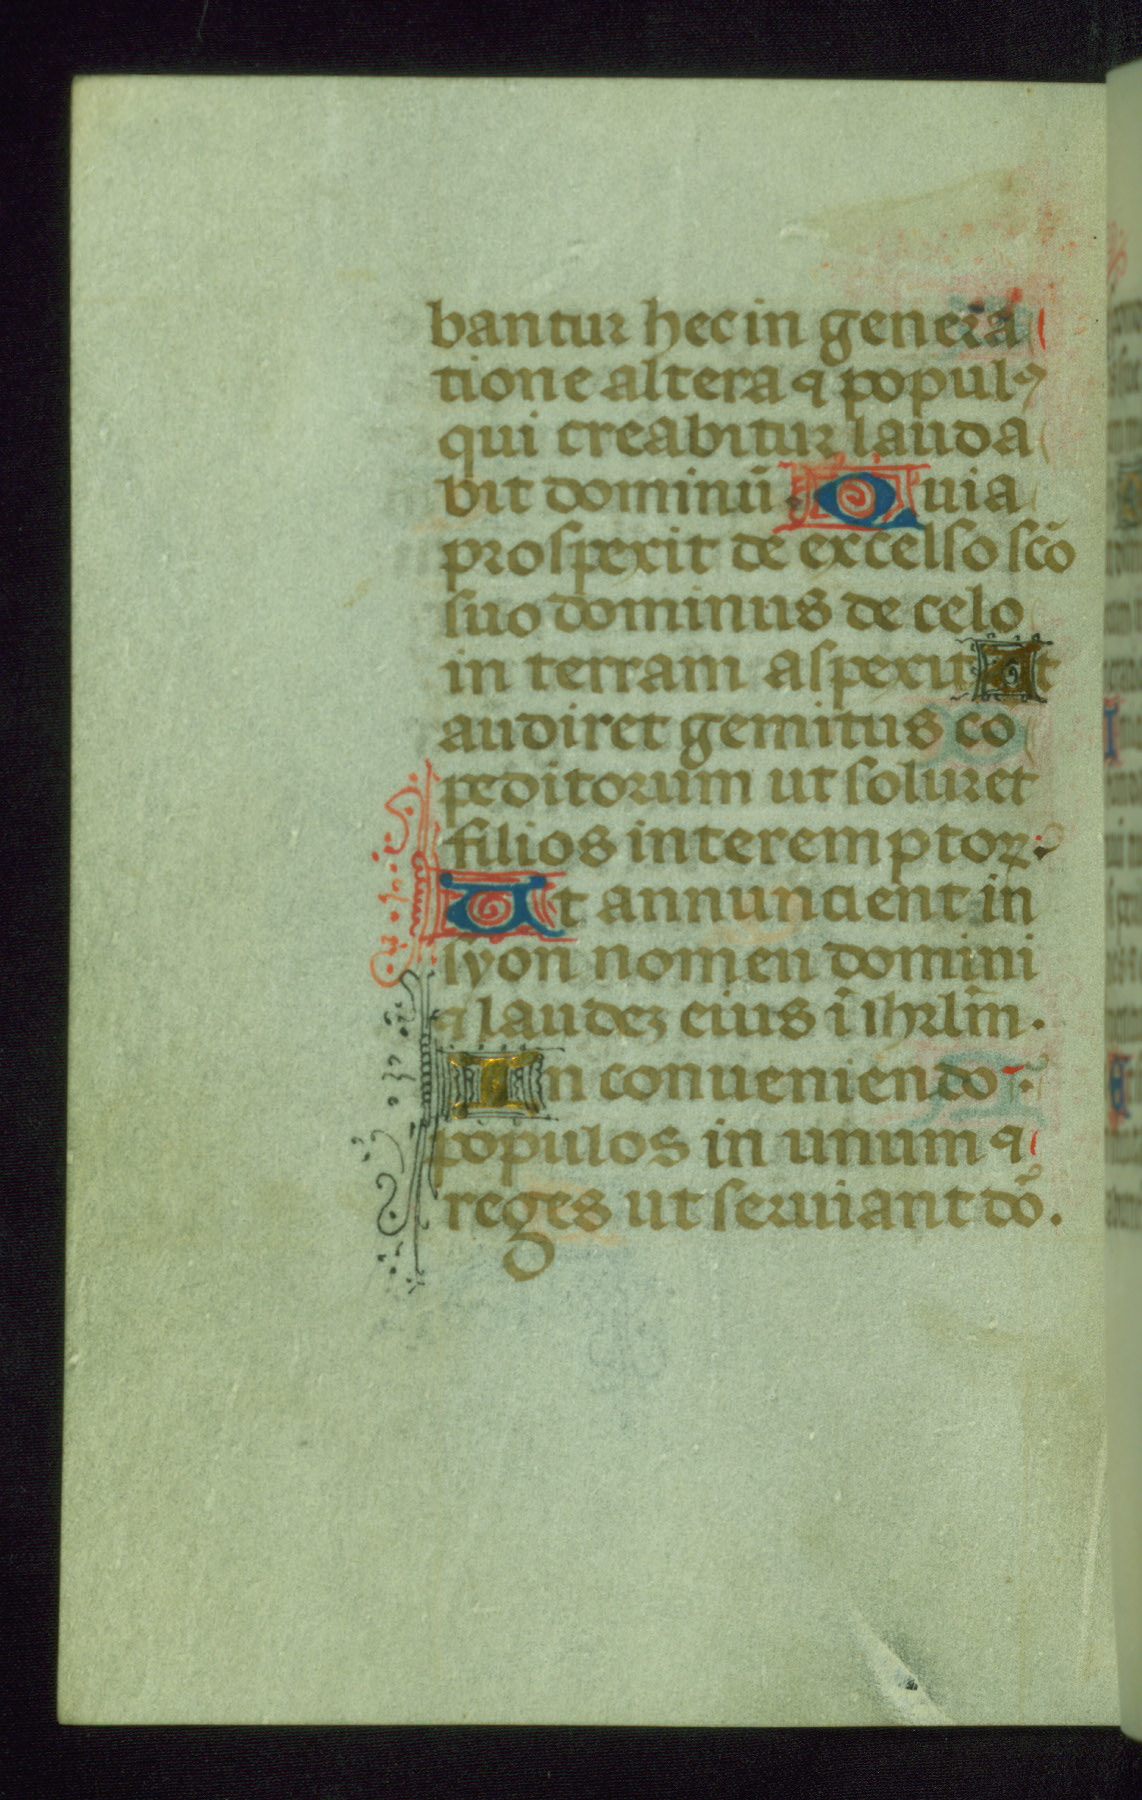 bantur hec in genera
tione altera ⁊ populꝰ
qui creabitur lauda
bit dominū. Quia
prospexit de excelso scō
suo dominus de celo
in terram aspexit Ut
audiret gemitus co
peditorum ut solueret
filios interemptoꝝ.
Ut annuncient in
syon nomen domini
⁊ laudez eius ī ihrlm̄.
In conueniendo
populos in unum ⁊
reges ut seruiant dō.